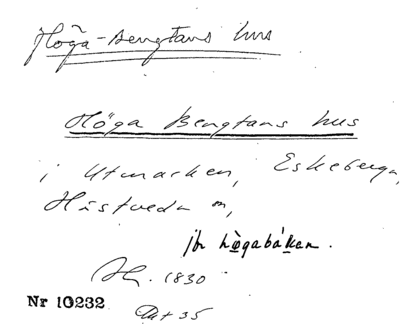 Höga-Bengtans hus
Höga Bengtans hus
i Utmarken, Eskeberga,
Histveda sn,
jbr hògabáken.
1830
Nr 10232
35